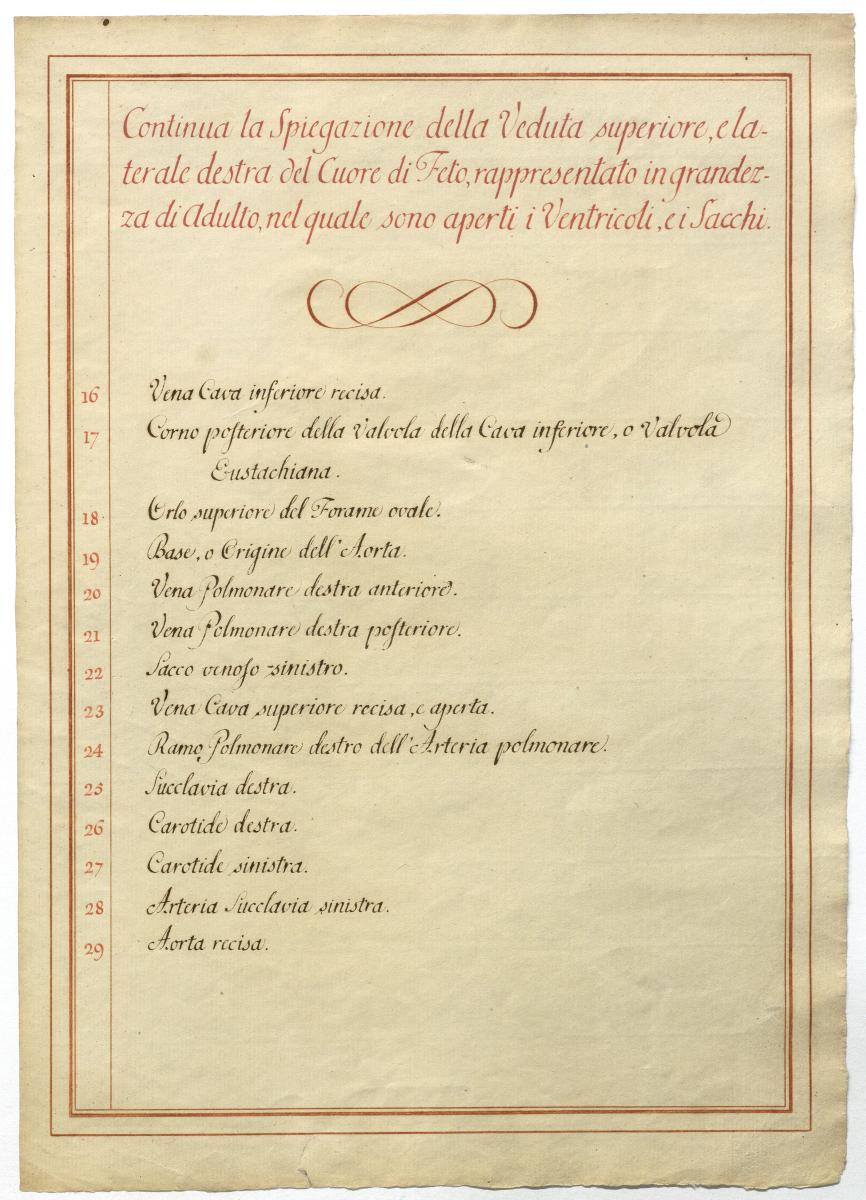 Continua la Spiegazione della Veduta superiore, e la-
terale destra del Cuore di Feto, rappresentato in grandez-
za di Adulto, nel quale sono aperti i Ventricoli, e i Sacchi.
16 Vena Cava inferiore recisa.
17 Corno posteriore della Valvola della Cava inferiore, o Valvola
Eustachiana.
18 Orlo superiore del Forame ovale.
19 Base, o Origine dell'Aorta.
20 Vena Polmonare destra anteriore.
21 Vena Polmonare destra posteriore.
22 Sacco venoso sinistro.
23 Vena Cava superiore recisa, e aperta.
24 Ramo Polmonare destro dell'Arteria polmonare.
25 Succlavia destra.
26 Carotide destra.
27 Carotide sinistra.
28 Arteria Succlavia sinistra.
29 Aorta recisa.